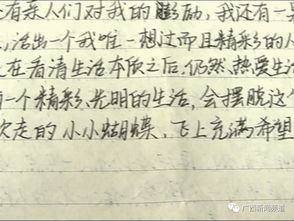 有亲人们对我的鼓励,我还有一
,活出一个我唯一想过而且精彩的人
在看清生活本质之后,仍然热爱生活
一个精彩、光明的生活,会摆脱这个
走的小小蝴蝶,飞上充满希望
广西新闻频道